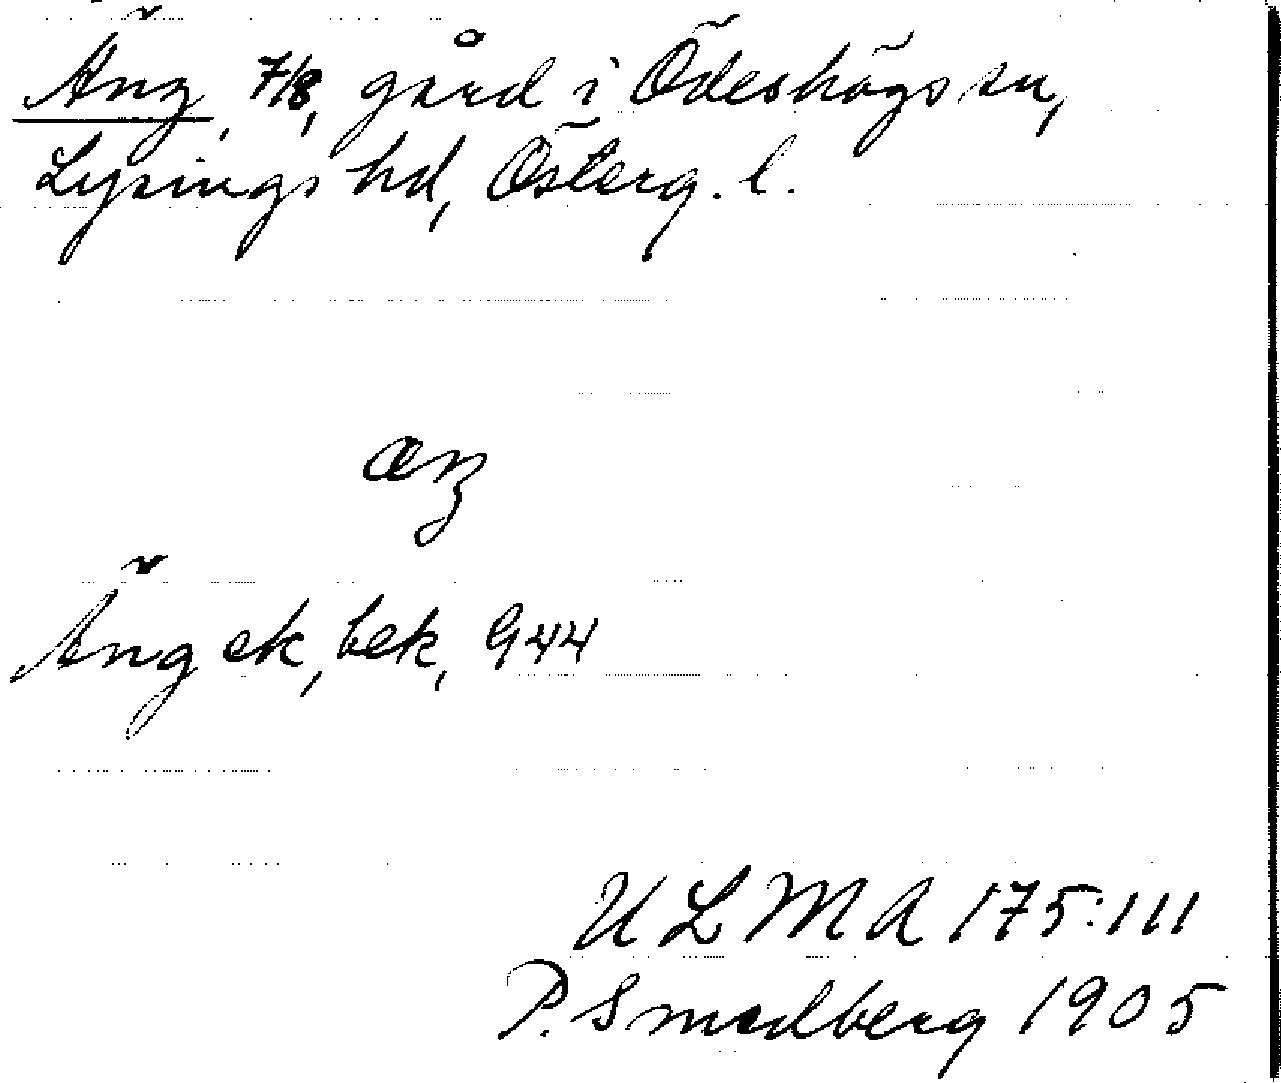 Äng, 7/8, gård i Ödeshögs sn,
Lysings hd, Österg. l.
æŋ
Äng ek, bek, 944
ULMA 175:111
P. Smedberg 1905